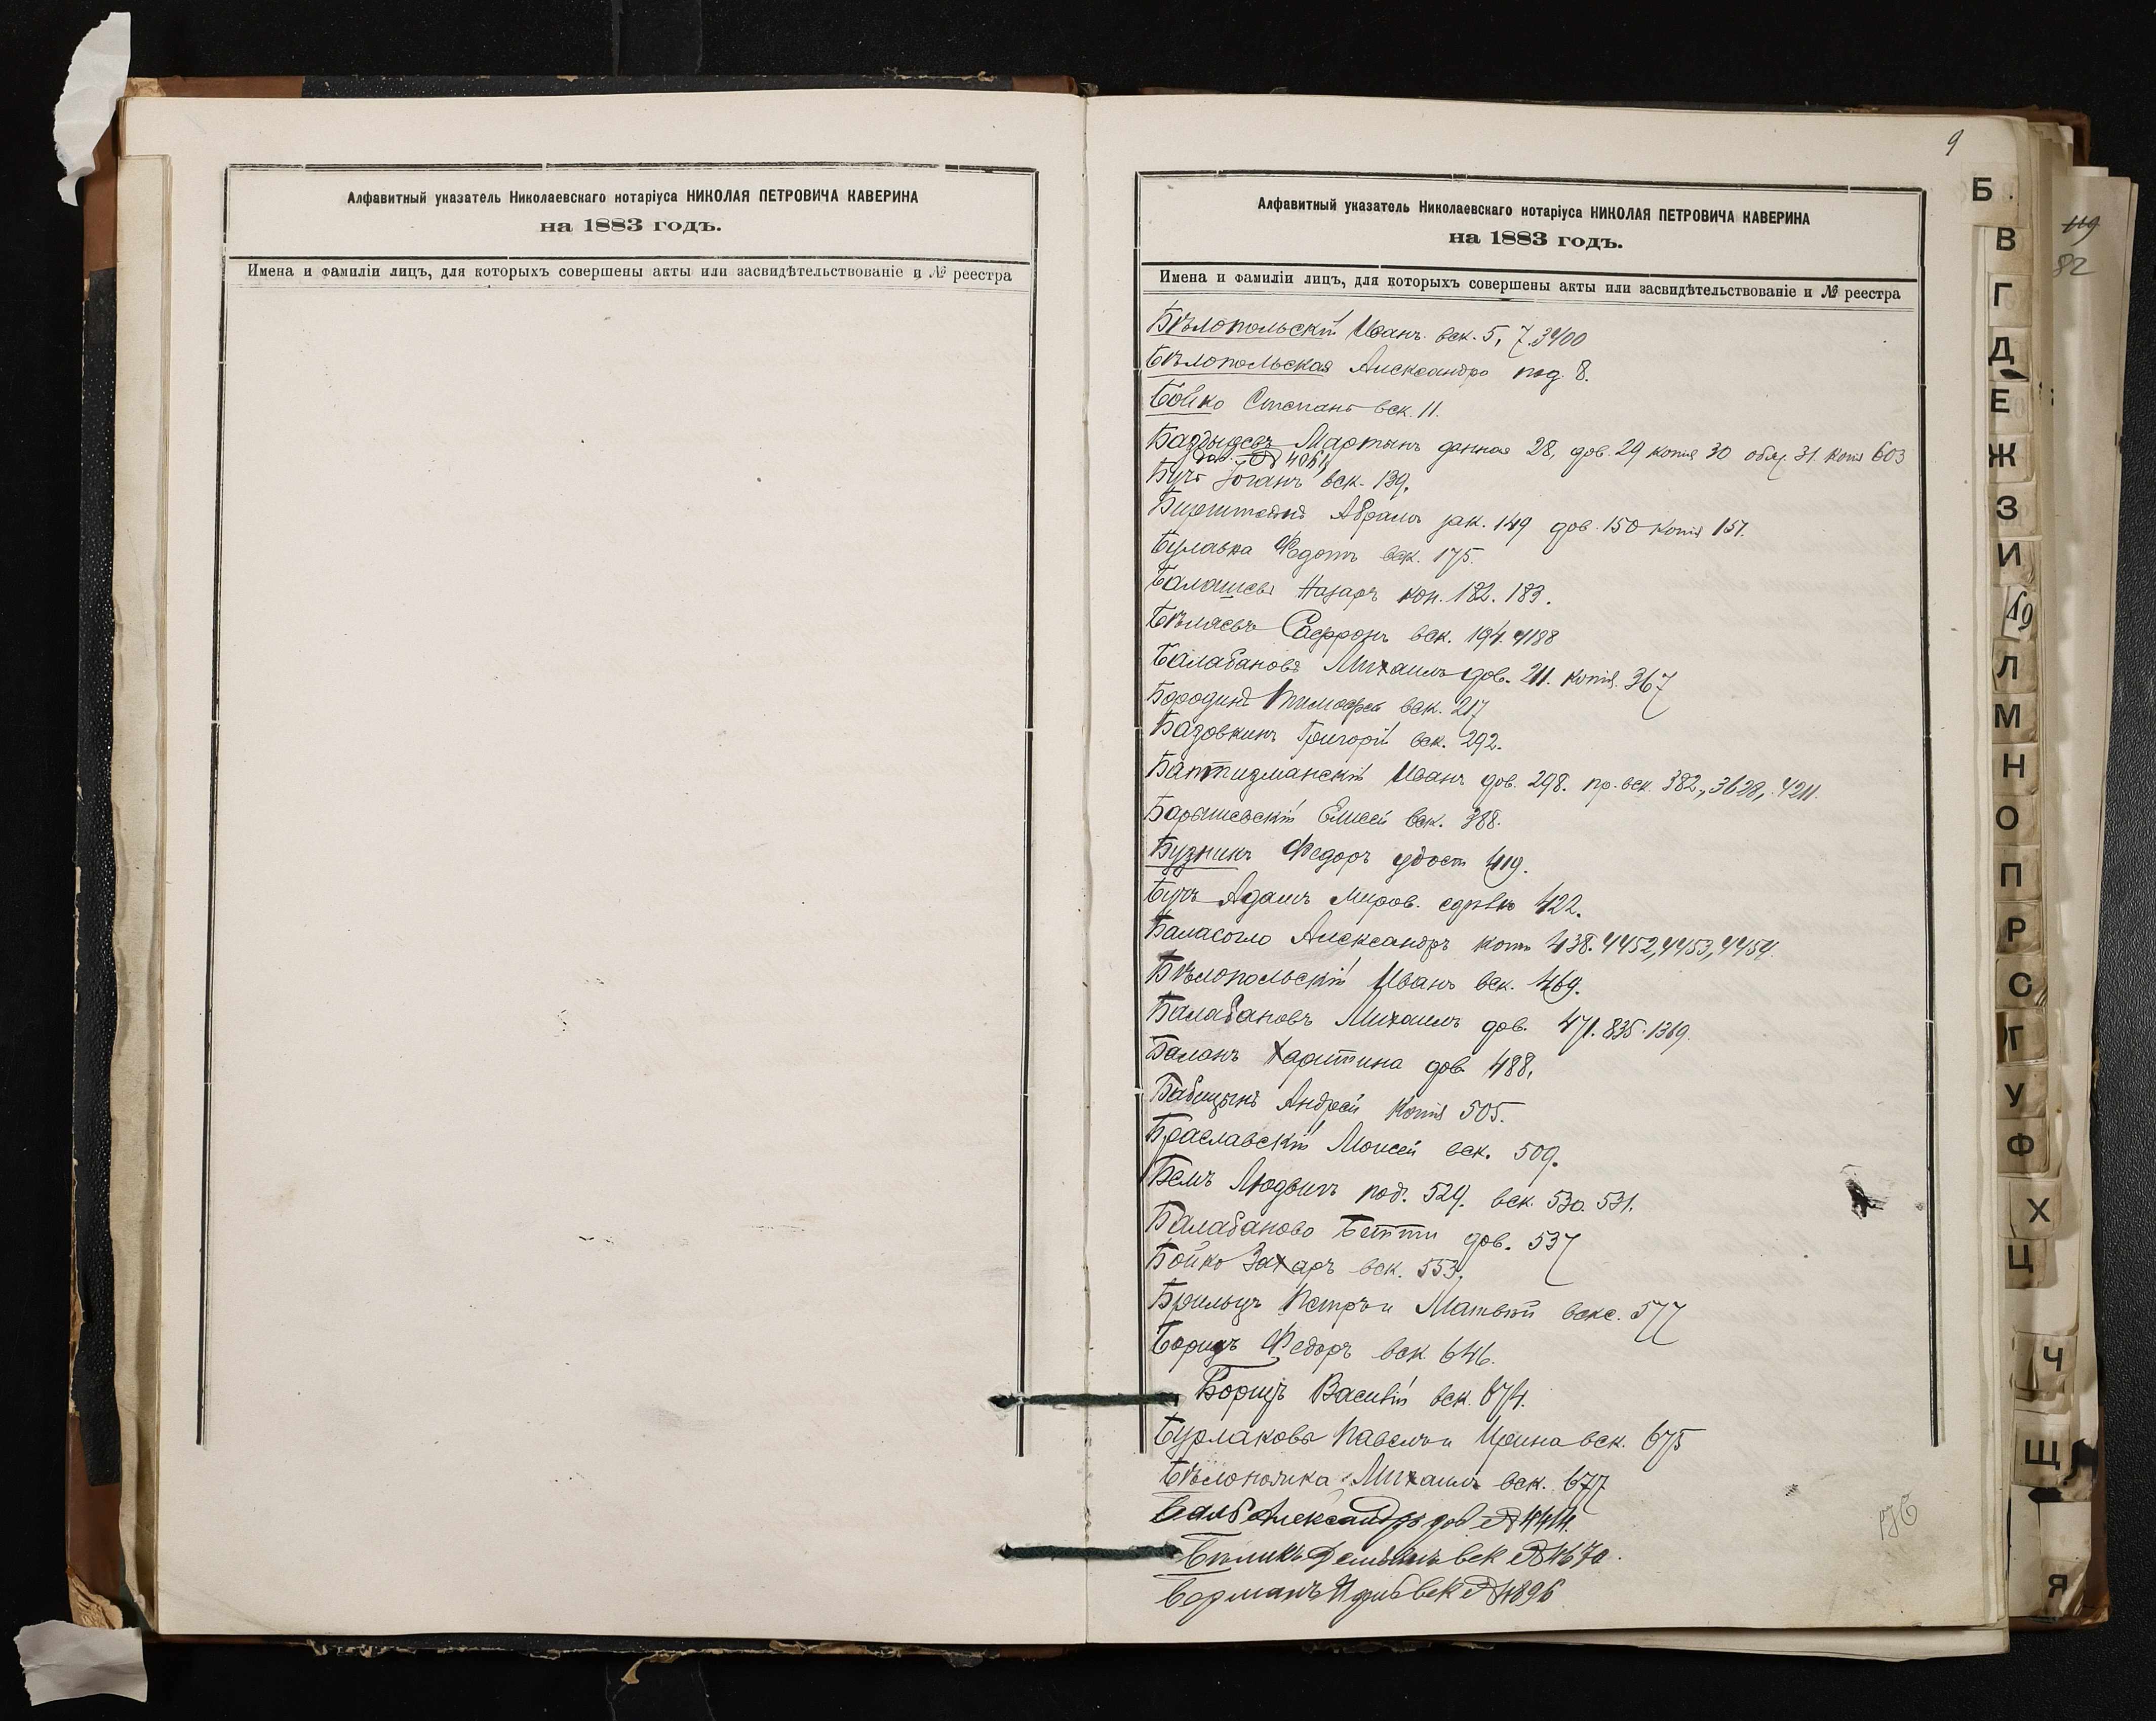 Алфавитный указатель Николаевскаго нотаріуса НИКОЛАЯ ПЕТРОВИЧА КАВЕРИНА
на 1883 годъ.
Имена и фамиліи лицъ, для которыхъ совершены акты или засвидѣтельствованіе и № реестра
9
Алфавитный указатель Николаевскаго нотаріуса НИКОЛАЯ ПЕТРОВИЧА КАВЕРИНА
на 1883 годъ.
Имена и фамиліи лицъ, для которыхъ совершены акты или засвидѣтельствованіе и № реестра
Бѣлопольскій Иванъ век. 5, 7. 3400
Бѣлопольская Александра под. 8.
Бойко Степанъ век. 11.
Мартынъ данная 28, дов. 29 копія 30 обяз. 31. копія 603
4061
Бучъ Іоганъ век. 139.
Абрамъ зак. 149 дов. 150 копія 151.
Булавка Федотъ век. 175.
Балашевъ Назаръ коп. 182. 183.
Бѣляевъ Сафронъ век. 194. 4188
Балабановъ Михаилъ дов. 211. копія. 367
Бородинъ Тимофей век. 217
Базовкинъ Григорій век. 292.
Баптизманскій Иванъ дов. 298. пр. век. 382., 3628, 4211.
Барышевскій Елисей век. 388.
Бузникъ Федоръ удост 419.
Бучъ Адамъ миров. сдѣлк 422.
Баласогло Александръ копія 438. 4452, 4453, 4454.
Бѣлопольскій Иванъ век. 469.
Балабановъ Михаилъ дов. 471. 835. 1369.
Баланъ Харитина дов. 488.
Бабицынъ Андрей копія 505.
Браславскій Моисей век. 509.
Бемъ Людвигъ под. 529. век. 530. 531.
Балабанова Бетти дов. 537
Бойко Захаръ век. 553.
Брильцъ Петръ и Матвѣй векс. 577
Борищъ Федоръ век. 646.
Борищъ Василій век. 674.
Бурлаковы Павелъ и Ирина век. 675
Бѣлоножка Михаилъ век. 677
Александръ дов № 4414.
Бѣликъ Демьянъ век № 4670.
Берманъ век № 4896
176
Б
В
Г
Д
Е
Ж
З
И
Л
М
Н
О
П
Р
С
Т
У
Ф
Х
Ц
Ч
Щ
Я
119
82